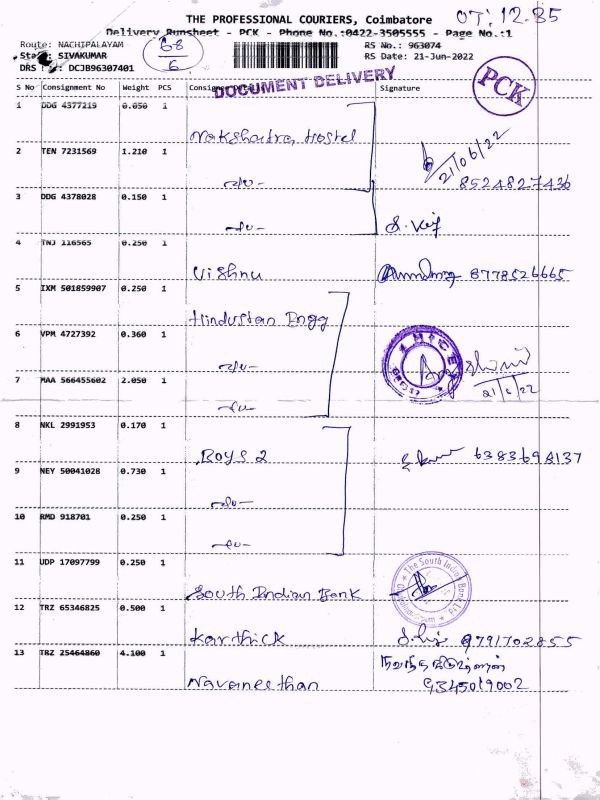 OT: 12.35
THE PROFESSIONAL COURIERS, Coimbatore
Delivery Runsheet - PCK - Phone No.:0422-3505555 - Page No.:1
Route: NACHIPALAYAM
SIVAKUMAR
DRS DCJB96307401
68
6
RS No.: 963074
RS Date: 21-Jun-2022
DOCUMENT DELIVERY
PCK
S No Consignment No Weight PCS Signature
1 DDG 4377219 0.050 1
Nakshatra Hostel
2 TEN 7231569 1.210 1
21/06/22
8524827436
3 DDG 4378028 0.150 1
4 TNJ 116565 0.250 1
Vishnu 8778526665
5 IXM 501859907 0.250 1
Hindustan Engg
6 VPM 4727392 0.360 1
7 MAA 566455602 2.050 1
21/6/22
8 NKL 2991953 0.170 1
Boys 2 6383698137
9 NEY 50041028 0.730 1
10 RMD 918701 0.250 1
11 UDP 17097799 0.250 1
South Indian Bank
The South Indian Bank Ltd
12 TRZ 65346825 0.500 1
Karthick 9791702855
13 TRZ 25464860 4.100 1
Navaneethan
9345019002